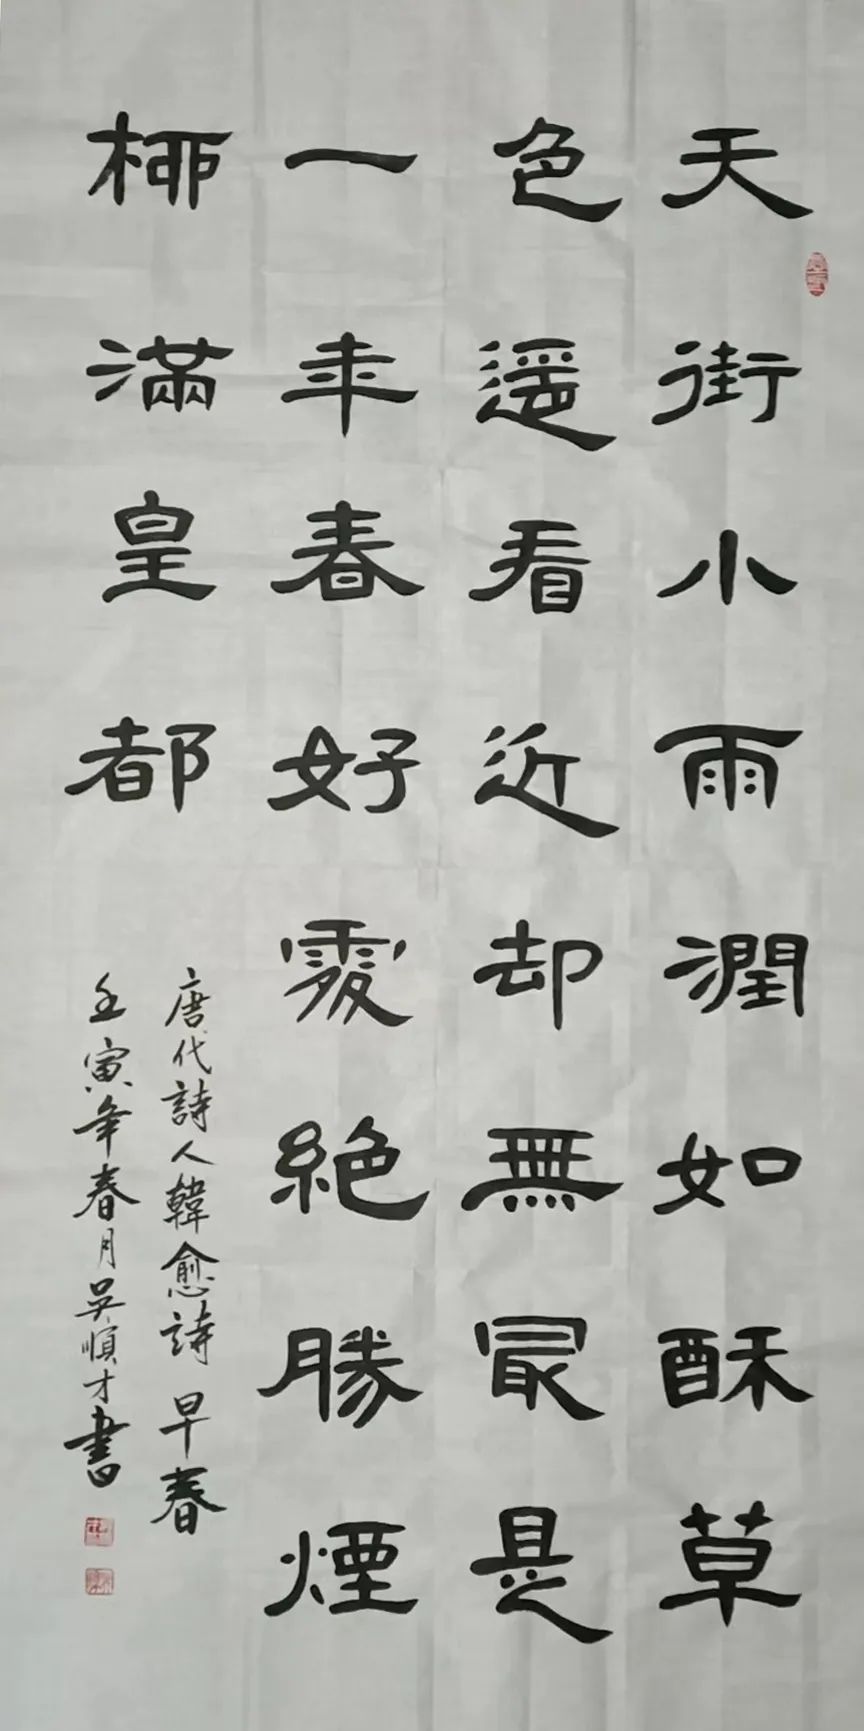 天街小雨潤如酥草
色遥看近却無冣是
一年春好處絶勝煙
柳滿皇都
唐代詩人韓愈詩早春
壬寅年春月吳順才書